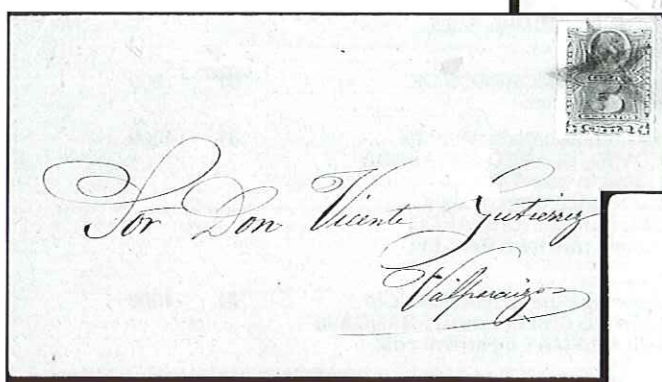 5
Sor Don Vicente Gutierrez
Valparaizo